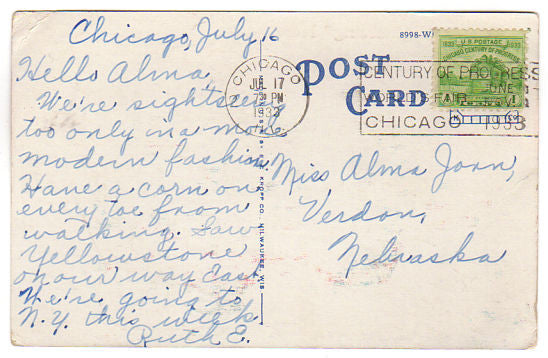 Chicago, July 16
Hello Alma,
We're sightseeing
too only in a more
modern fashion
Have a corn on
every toe from
walking. Saw
Yellowstone
on our way East
We're going to
N.Y. this week
Ruth E.
8998-W
POST
CARD
CHICAGO
JUL 17
PM
1933
U.S. POSTAGE
1833 1933
CHICAGO CENTURY OF PROGRESS
CENTURY OF PROGRESS
JUNE 1
WORLD'S FAIR
CHICAGO 1933
KROPP CO. MILWAUKEE, WIS
Miss Alma Joan,
Verdon,
Nebraska